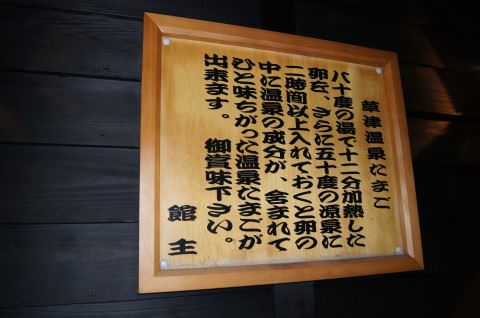 草津温泉たまご
八十度の湯で十二分加熱した
卵を、さらに五十度の源泉に
二時間以上入れておくと卵の
中に温泉の成分が、含まれて
ひと味ちがった温泉たまごが
出来ます。 御賞味下さい。
館主